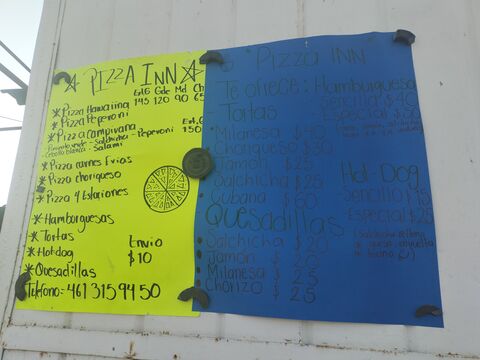 PIZZA INN
ExtG Gde Md Ch
* Pizza Hawaiina 145 120 90 65
* Pizza Peperoni
* Pizza Campirana Ext.G
Pimiento verde - Salchicha - Peperoni 150
Cebolla blanca - Salami
* Pizza carnes Frias
* Pizza choriqueso
* Pizza 4 Estaciones
* Hamburguesas
* Tortas Envio
* Hotdog $10
* Quesadillas
Telefono = 461 315 94 50
PIZZA INN
Te ofrece: Hamburguesa
Sencilla $40
- Tortas - Especial $50
Milanesa $40
Choriqueso $30
Jamón $25
Salchicha $25
Cubana $60
Hot-Dog
Sencillo $15
Especial $25
(Salchicha rellena
de queso
Quesadillas
Salchicha $20
Jamón $20
Milanesa $25
Chorizo $25